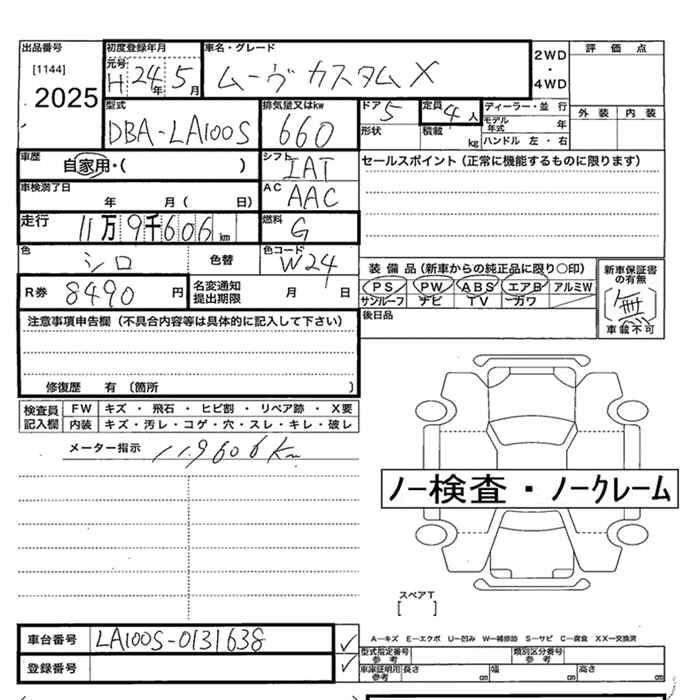 出品番号 初度登録年月 車名・グレード 2WD ・ 4WD 評価点
[1144] 元号 H 24年 5月 ムーヴ カスタム X
2025
型式 排気量又はkw ドア 5 定員 4人 ディーラー・並行 外装 内装
DBA-LA100S 660 形状 積載 kg モデル年式 年
ハンドル 左・右
車歴 自家用・( ) シフト IAT セールスポイント (正常に機能するものに限ります)
車検満了日 年 月( 日) AC AAC
走行 11万9千606km 燃料 G
色 シロ 色替 色コード W24 装備品 (新車からの純正品に限り○印) 新車保証書の有無
R券 8490円 名変通知提出期限 月 日 PS PW ABS エアB アルミW (無)
サンルーフ ナビ TV カワ 車載不可
注意事項申告欄 (不具合内容等は具体的に記入して下さい) 後日品
修復歴 有 (箇所 )
検査員記入欄 FW キズ・飛石・ヒビ割・リペア跡・X要
内装 キズ・汚レ・コゲ・穴・スレ・キレ・破レ
メーター指示 119606Km
ノー検査・ノークレーム
スペアT
[ ]
車台番号 LA100S-0131638 A―キズ E―エクボ U―凹み W―補修跡 S―サビ C―腐食 XX―交換済
型式指定番号 参考 類別区分番号 参考
登録番号 車庫証明用 参考 長さ cm 幅 cm 高さ cm